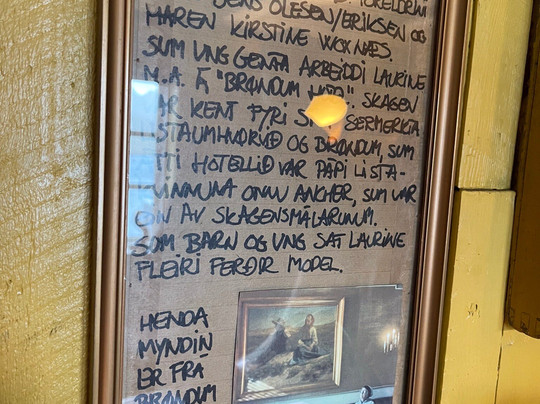 JENS OLESEN/ERIKSEN OG
MAREN KIRSTINE WOXNÆS.
SUM UNG GENTA ARBEIÐDI LAURINE
M.A. Á "BRØNDUM SKAGEN
KENT FYRI SERMERKTA
OG BRØNDUM, SUM
HOTELLIÐ VAR PÁPI LISTA-
ANCHER, SUM VAR
AV SKAGENSMÁLARUNUM.
SOM BARN OG UNG SAT LAURINE
FLEIRI FERÐIR MODEL.
HENDA
MYNDIN
ER FRÁ
BRØNDUM